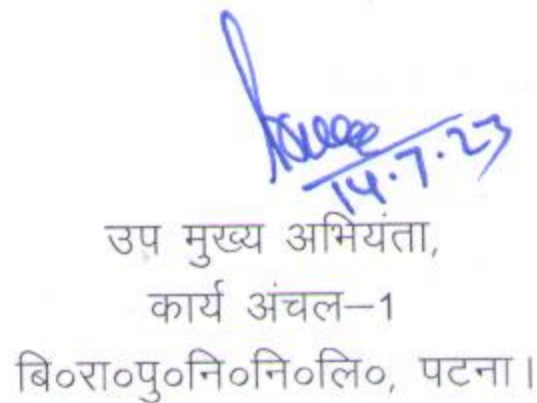 14.7.23
उप मुख्य अभियंता,
कार्य अंचल–1
बि०रा०पु०नि०नि०लि०, पटना।